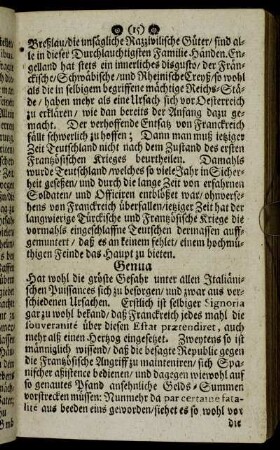 (15)
Breßlau/die unsägliche Razivilische Güter/sind al-
le in dieser Durchlauchtigsten Familie Händen. En-
gelland hat stets ein innerliches disgusto/ der Frän-
ckische/Schwäbische/und Rheinische Creyß/so wohl
als die in selbigem begriffene mächtige Reichs-Stä-
de/ haben mehr als eine Ursach sich vor Oesterreich
zu erklären/ wie dan bereits der Anfang dazu ge-
macht. Der verhoffende Einfall von Franckreich
fällt schwerlich zu hoffen; Dann man muß jetziger
Zeit Teutschland nicht nach dem Zustand des ersten
Frantzösischen Krieges beurtheilen. Damahls
wurde Teutschland/welches so viele Jahr in Sicher-
heit gesessen/ und durch die lange Zeit von erfahrnen
Soldaten/ und Officiren entblösset war/ ohnverse-
hens von Franckreich überfallen/jetziger Zeit hat der
langwierige Türckische und Frantzösische Kriege die
vormahls eingeschlaffne Teutschen dermassen auff-
gemuntert/ daß es an keinem fehlet/ einem hochmü-
thigen Feinde das Haupt zu bieten.
Genua
Hat wohl die gröste Gefahr unter allen Italiäni-
schen Puissances sich zu besorgen/ und zwar aus ver-
schiedenen Ursachen. Erstlich ist selbiger Signoria
gar zu wohl bekand/ daß Franckreich jedes mahl die
souveranité über diesen Estat prætendiret, auch
mehr als einen Hertzog eingesetzet. Zweytens so ist
männiglich wissend/ daß die besagte Republic gegen
die Frantzösische Angriff zu maintentiren/ sich Spa-
nischer assistence bedienen/ und dagegen wiewohl auff
so genautes Pfand ansehnliche Gelds-Summen
vorstrecken müssen: Nunmehr da par certaine fata-
lité aus beeden eins geworden/siehet es so wohl vor
die